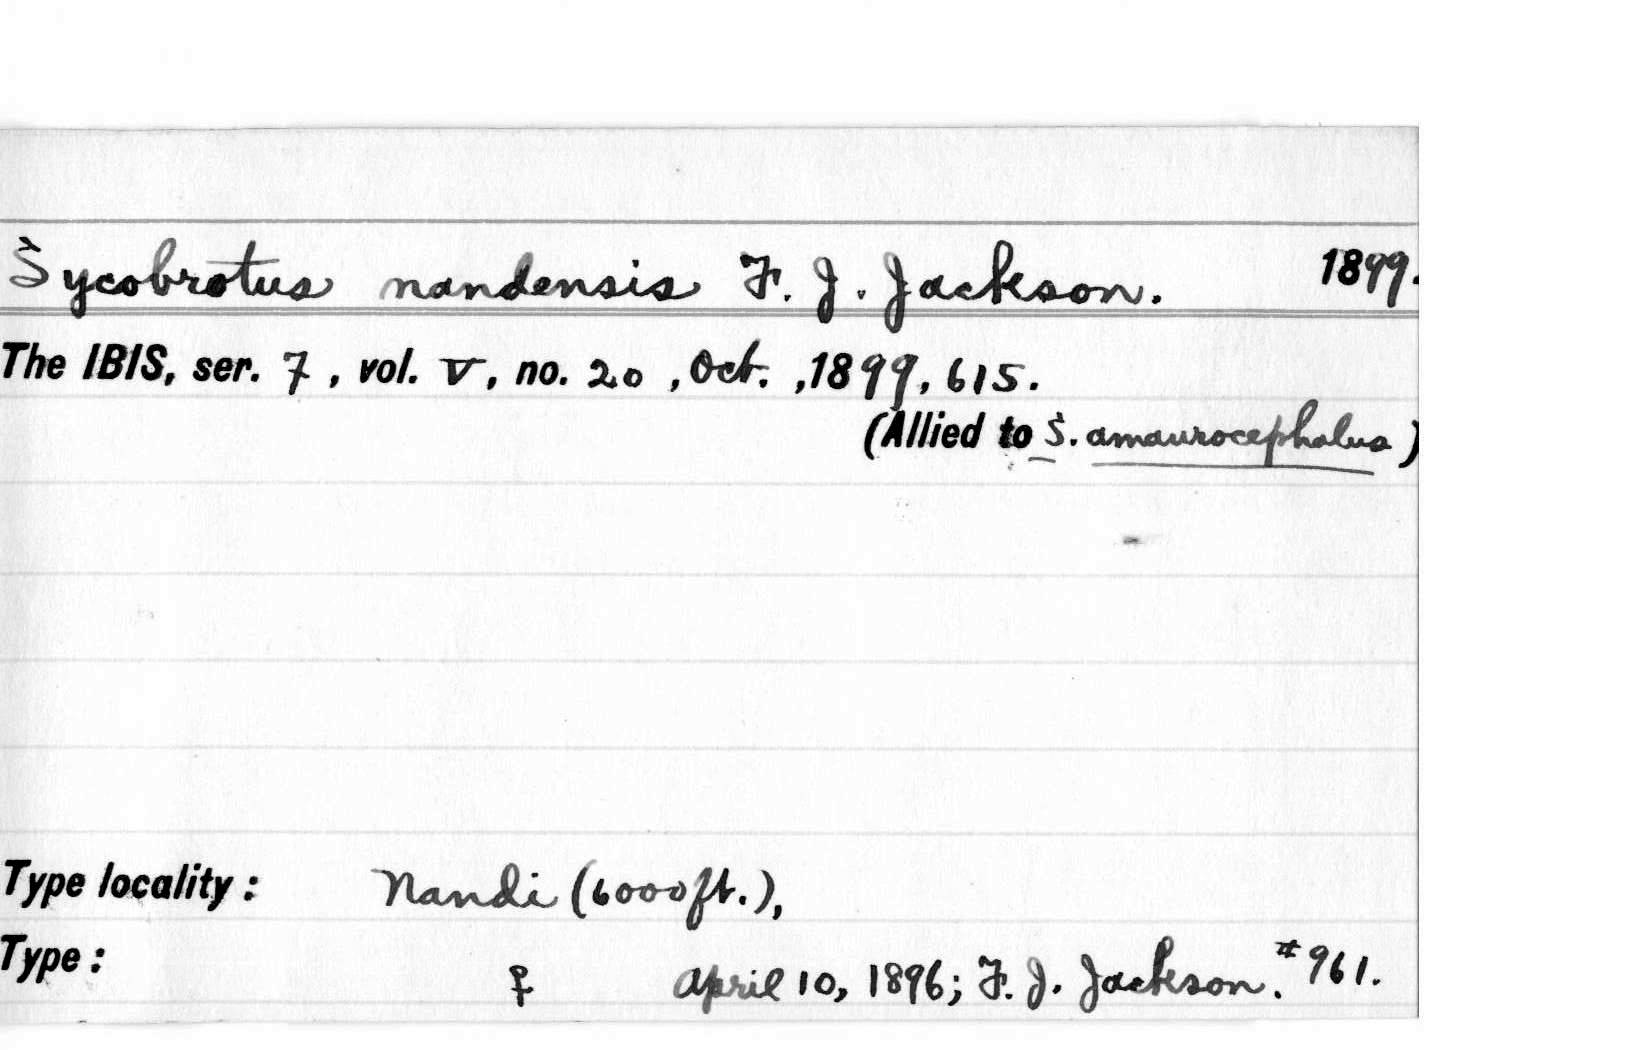 Sycobrotus nandensis F. J. Jackson. 1899.
The IBIS, ser. 7, vol. V, no. 20, Oct., 1899, 615.
(Allied to S. amaurocephalus)
Type locality: Nandi (6000 ft.),
Type: ♀ April 10, 1896; F. J. Jackson. #961.